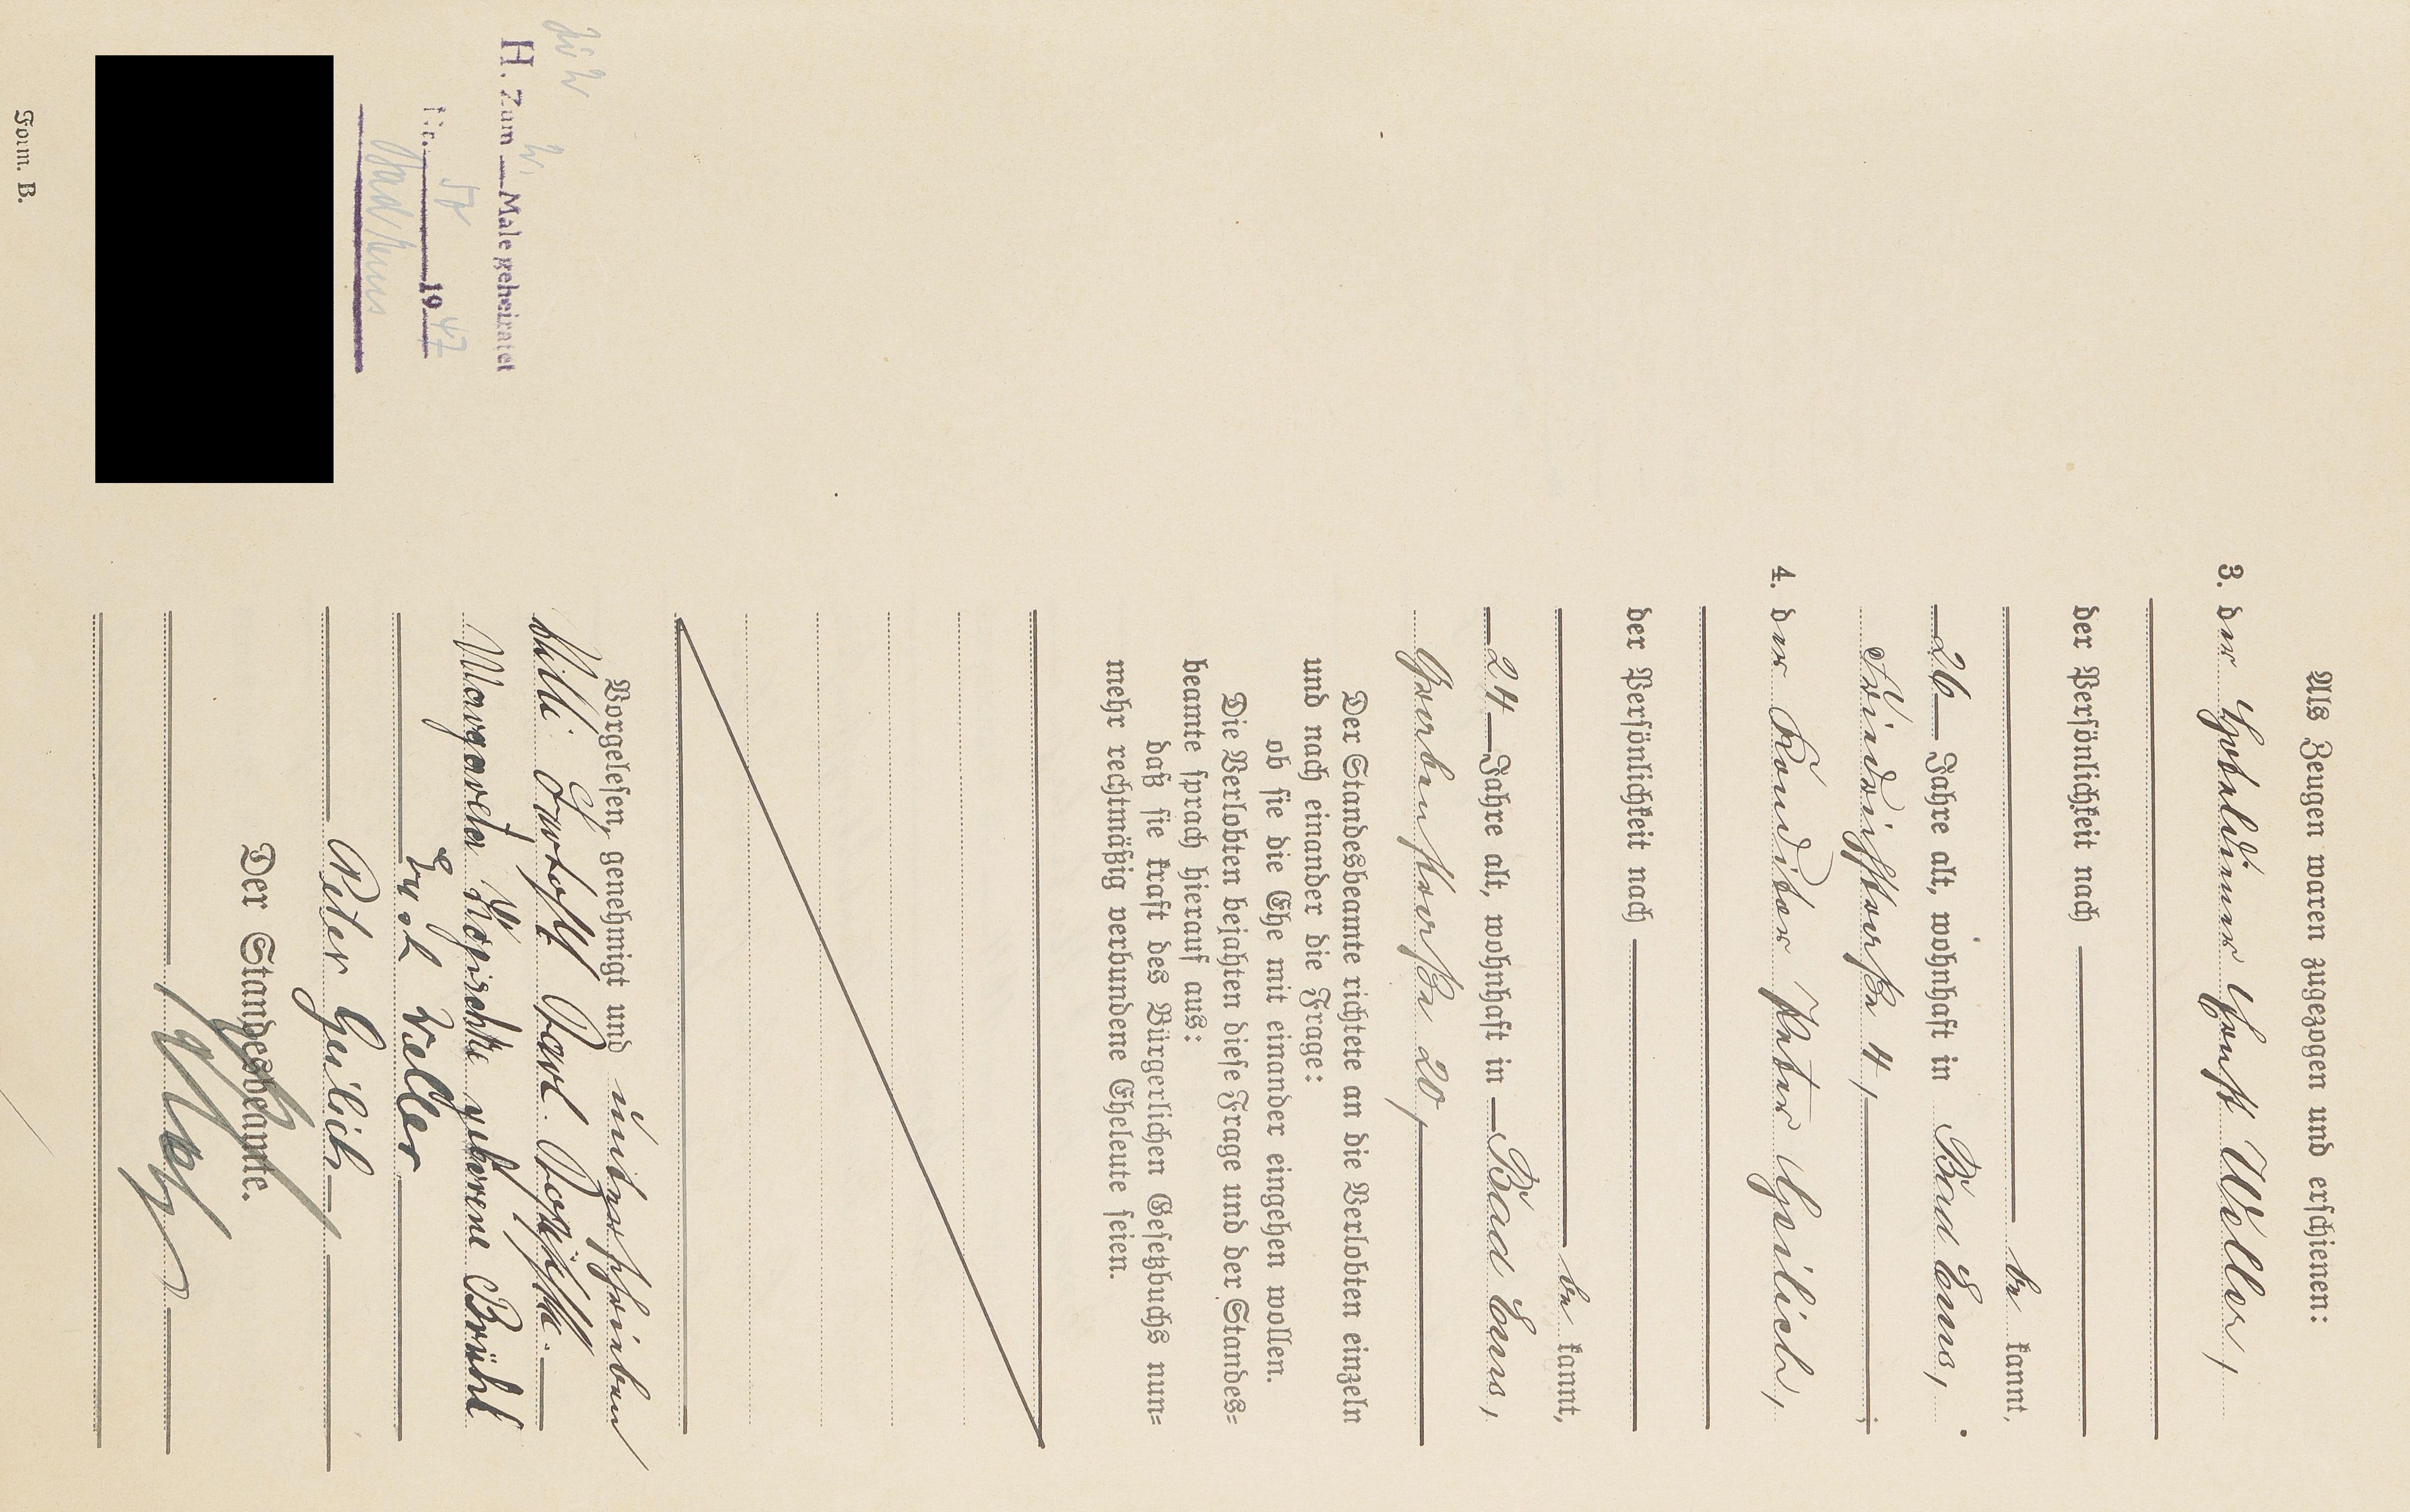 Als Zeugen waren zugezogen und erschienen:
3. der Hoteldiener Ernst Weller,
der Persönlichkeit nach
be kannt,
26 Jahre alt, wohnhaft in Bad Ems,
4,
4. der Konditor Peter
der Persönlichkeit nach
be kannt,
24 Jahre alt, wohnhaft in Bad Ems,
20,
Der Standesbeamte richtete an die Verlobten einzeln
und nach einander die Frage:
ob sie die Ehe mit einander eingehen wollen.
Die Verlobten bejahten diese Frage und der Standes=
beamte sprach hierauf aus:
daß sie kraft des Bürgerlichen Gesetzbuchs nun=
mehr rechtmäßig verbundene Eheleute seien.
Vorgelesen, genehmigt und unterschrieben
Willi Karl
Margareta geborene Brühl
Ernst Weller
Peter
Der Standesbeamte.
H. Zum Male geheiratet
Nr. 19 47
Form. B.